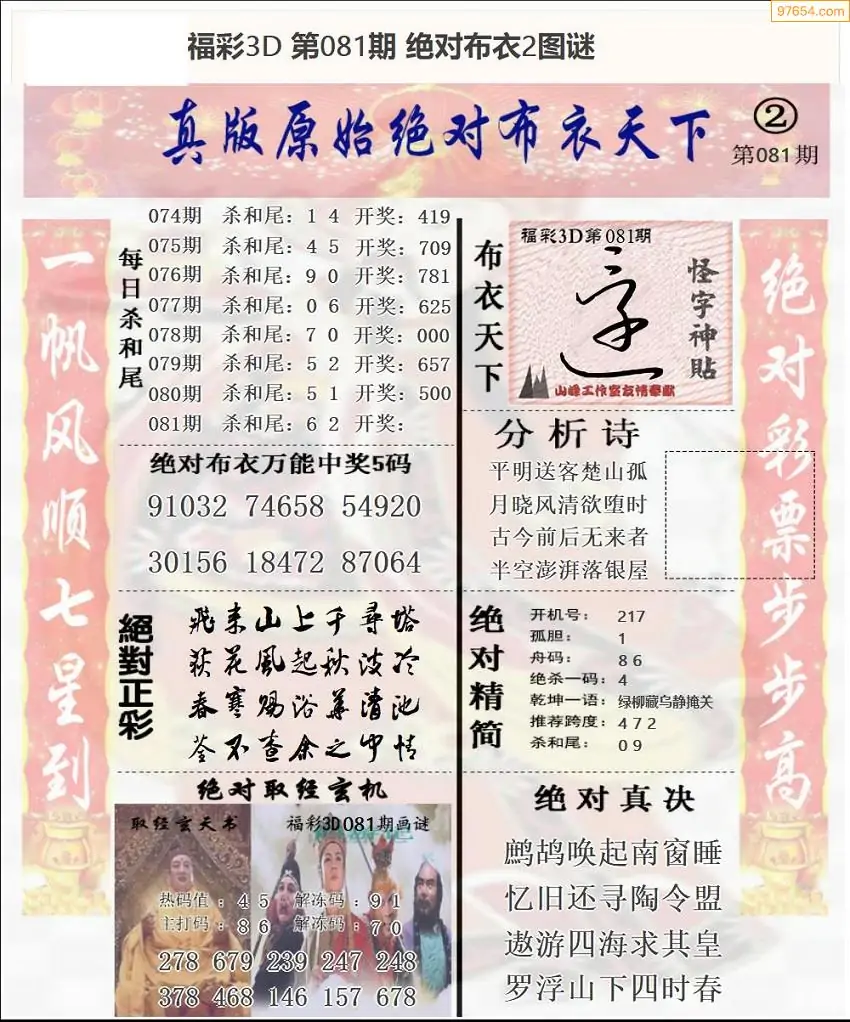 97654.com
福彩3D 第081期 绝对布衣2图谜
真版原始绝对布衣天下
②
第081期
一帆风顺七星到
每日杀和尾
074期 杀和尾：1 4 开奖：419
075期 杀和尾：4 5 开奖：709
076期 杀和尾：9 0 开奖：781
077期 杀和尾：0 6 开奖：625
078期 杀和尾：7 0 开奖：000
079期 杀和尾：5 2 开奖：657
080期 杀和尾：5 1 开奖：500
081期 杀和尾：6 2 开奖：
绝对布衣万能中奖5码
91032 74658 54920
30156 18472 87064
絕對正彩
飛来山上千尋塔
荻花風起秋波冷
春寒赐浴華清池
荃不查余之中情
绝对取经玄机
取经玄天书
福彩3D081期画谜
热码值：4 5 解冻码：9 1
主打码：8 6 解冻码：7 0
278 679 239 247 248
378 468 146 157 678
布衣天下
福彩3D第081期
怪字神贴
山峰工作室友情奉献
分析诗
平明送客楚山孤
月晓风清欲堕时
古今前后无来者
半空澎湃落银屋
绝对精简
开机号： 217
孤胆： 1
舟码： 8 6
绝杀一码：4
乾坤一语：绿柳藏乌静掩关
推荐跨度：4 7 2
杀和尾： 0 9
绝对真决
鹧鸪唤起南窗睡
忆旧还寻陶令盟
遨游四海求其皇
罗浮山下四时春
绝对彩票步步高